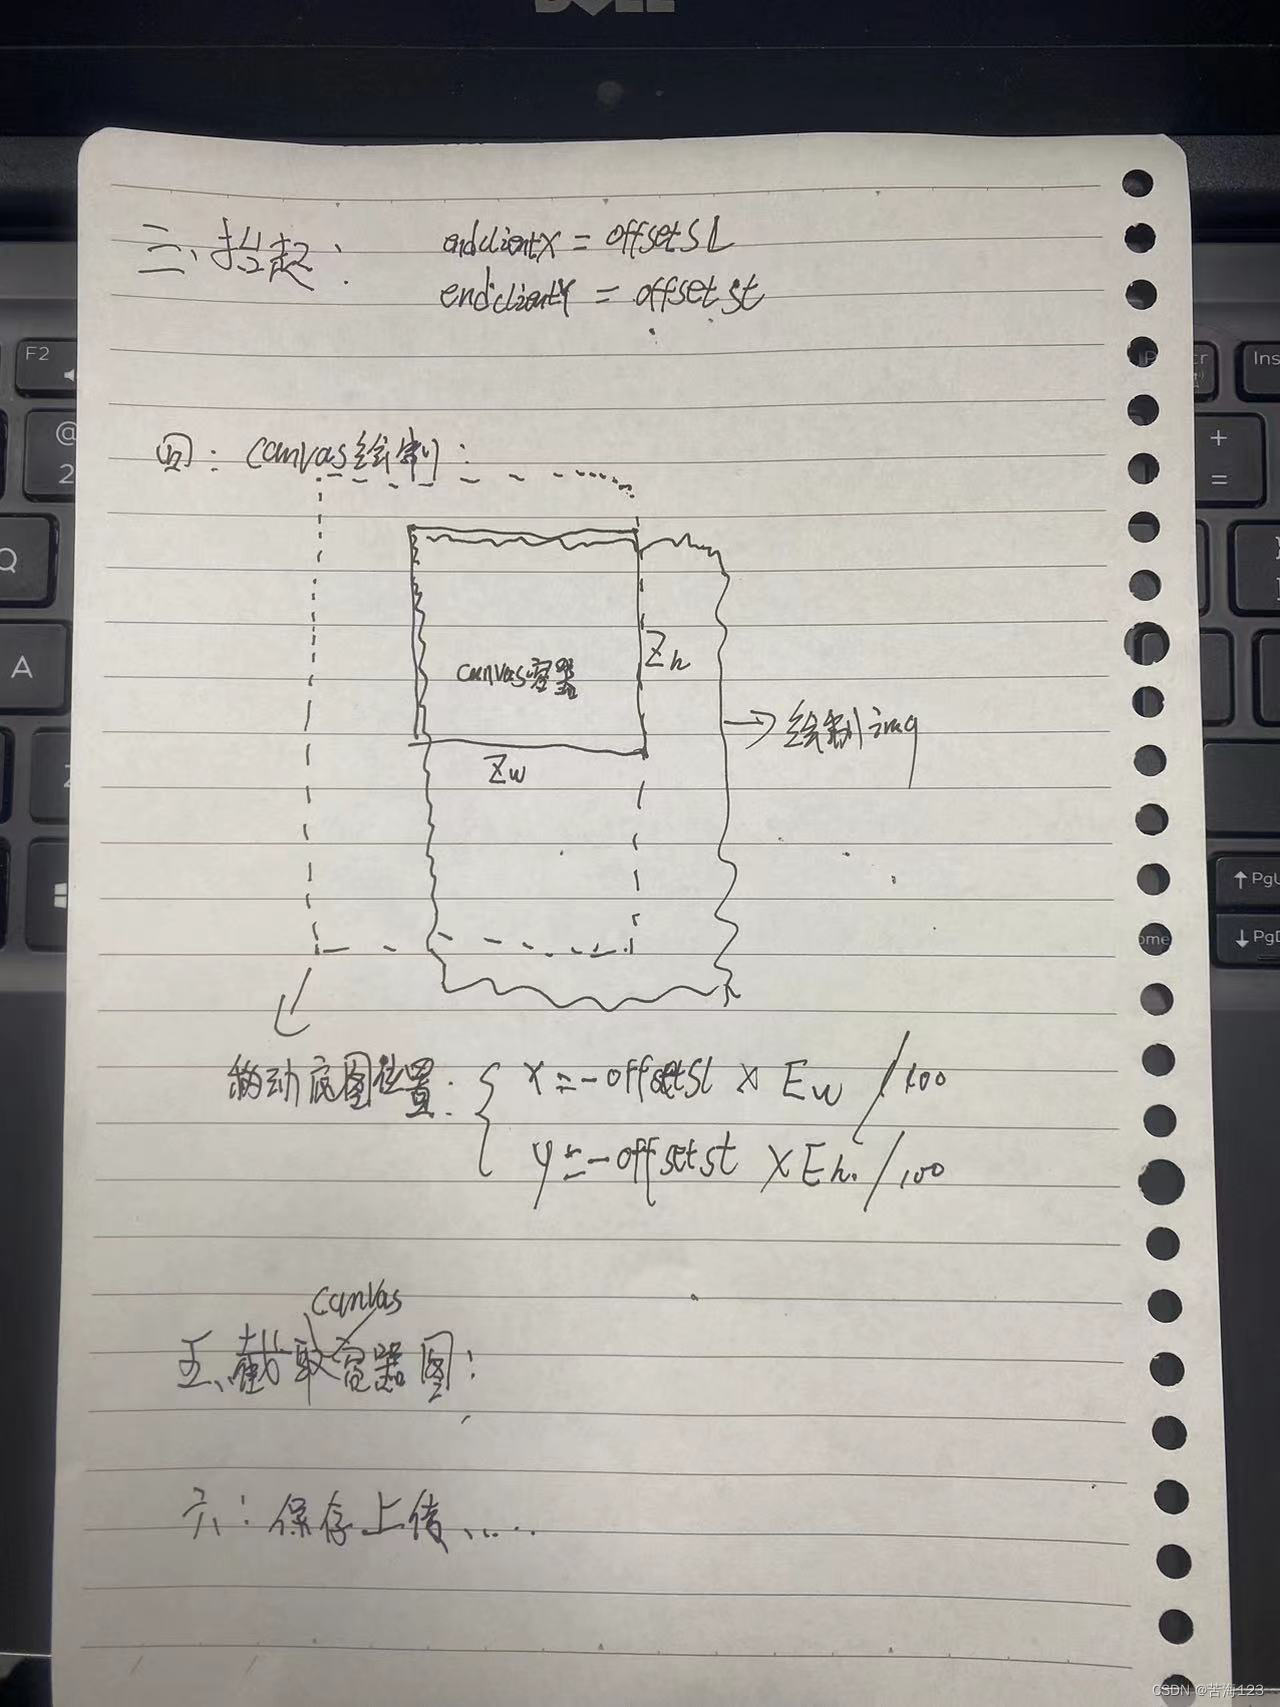 DELL
三、抬起： endclientX = offsetSL
endclientY = offsetSt
四： canvas绘制：
canvas容器
Zh
Zw
→绘制img
移动底图位置： { x = -offsetSl × Ew /100
y = -offsetSt × Eh. /100
canvas
五、截取容器图：
六：保存上传、....
F2
@
2
Q
A
Z
Ins
+
=
↑ PgU
ome
↓ PgD
CSDN @苦海123